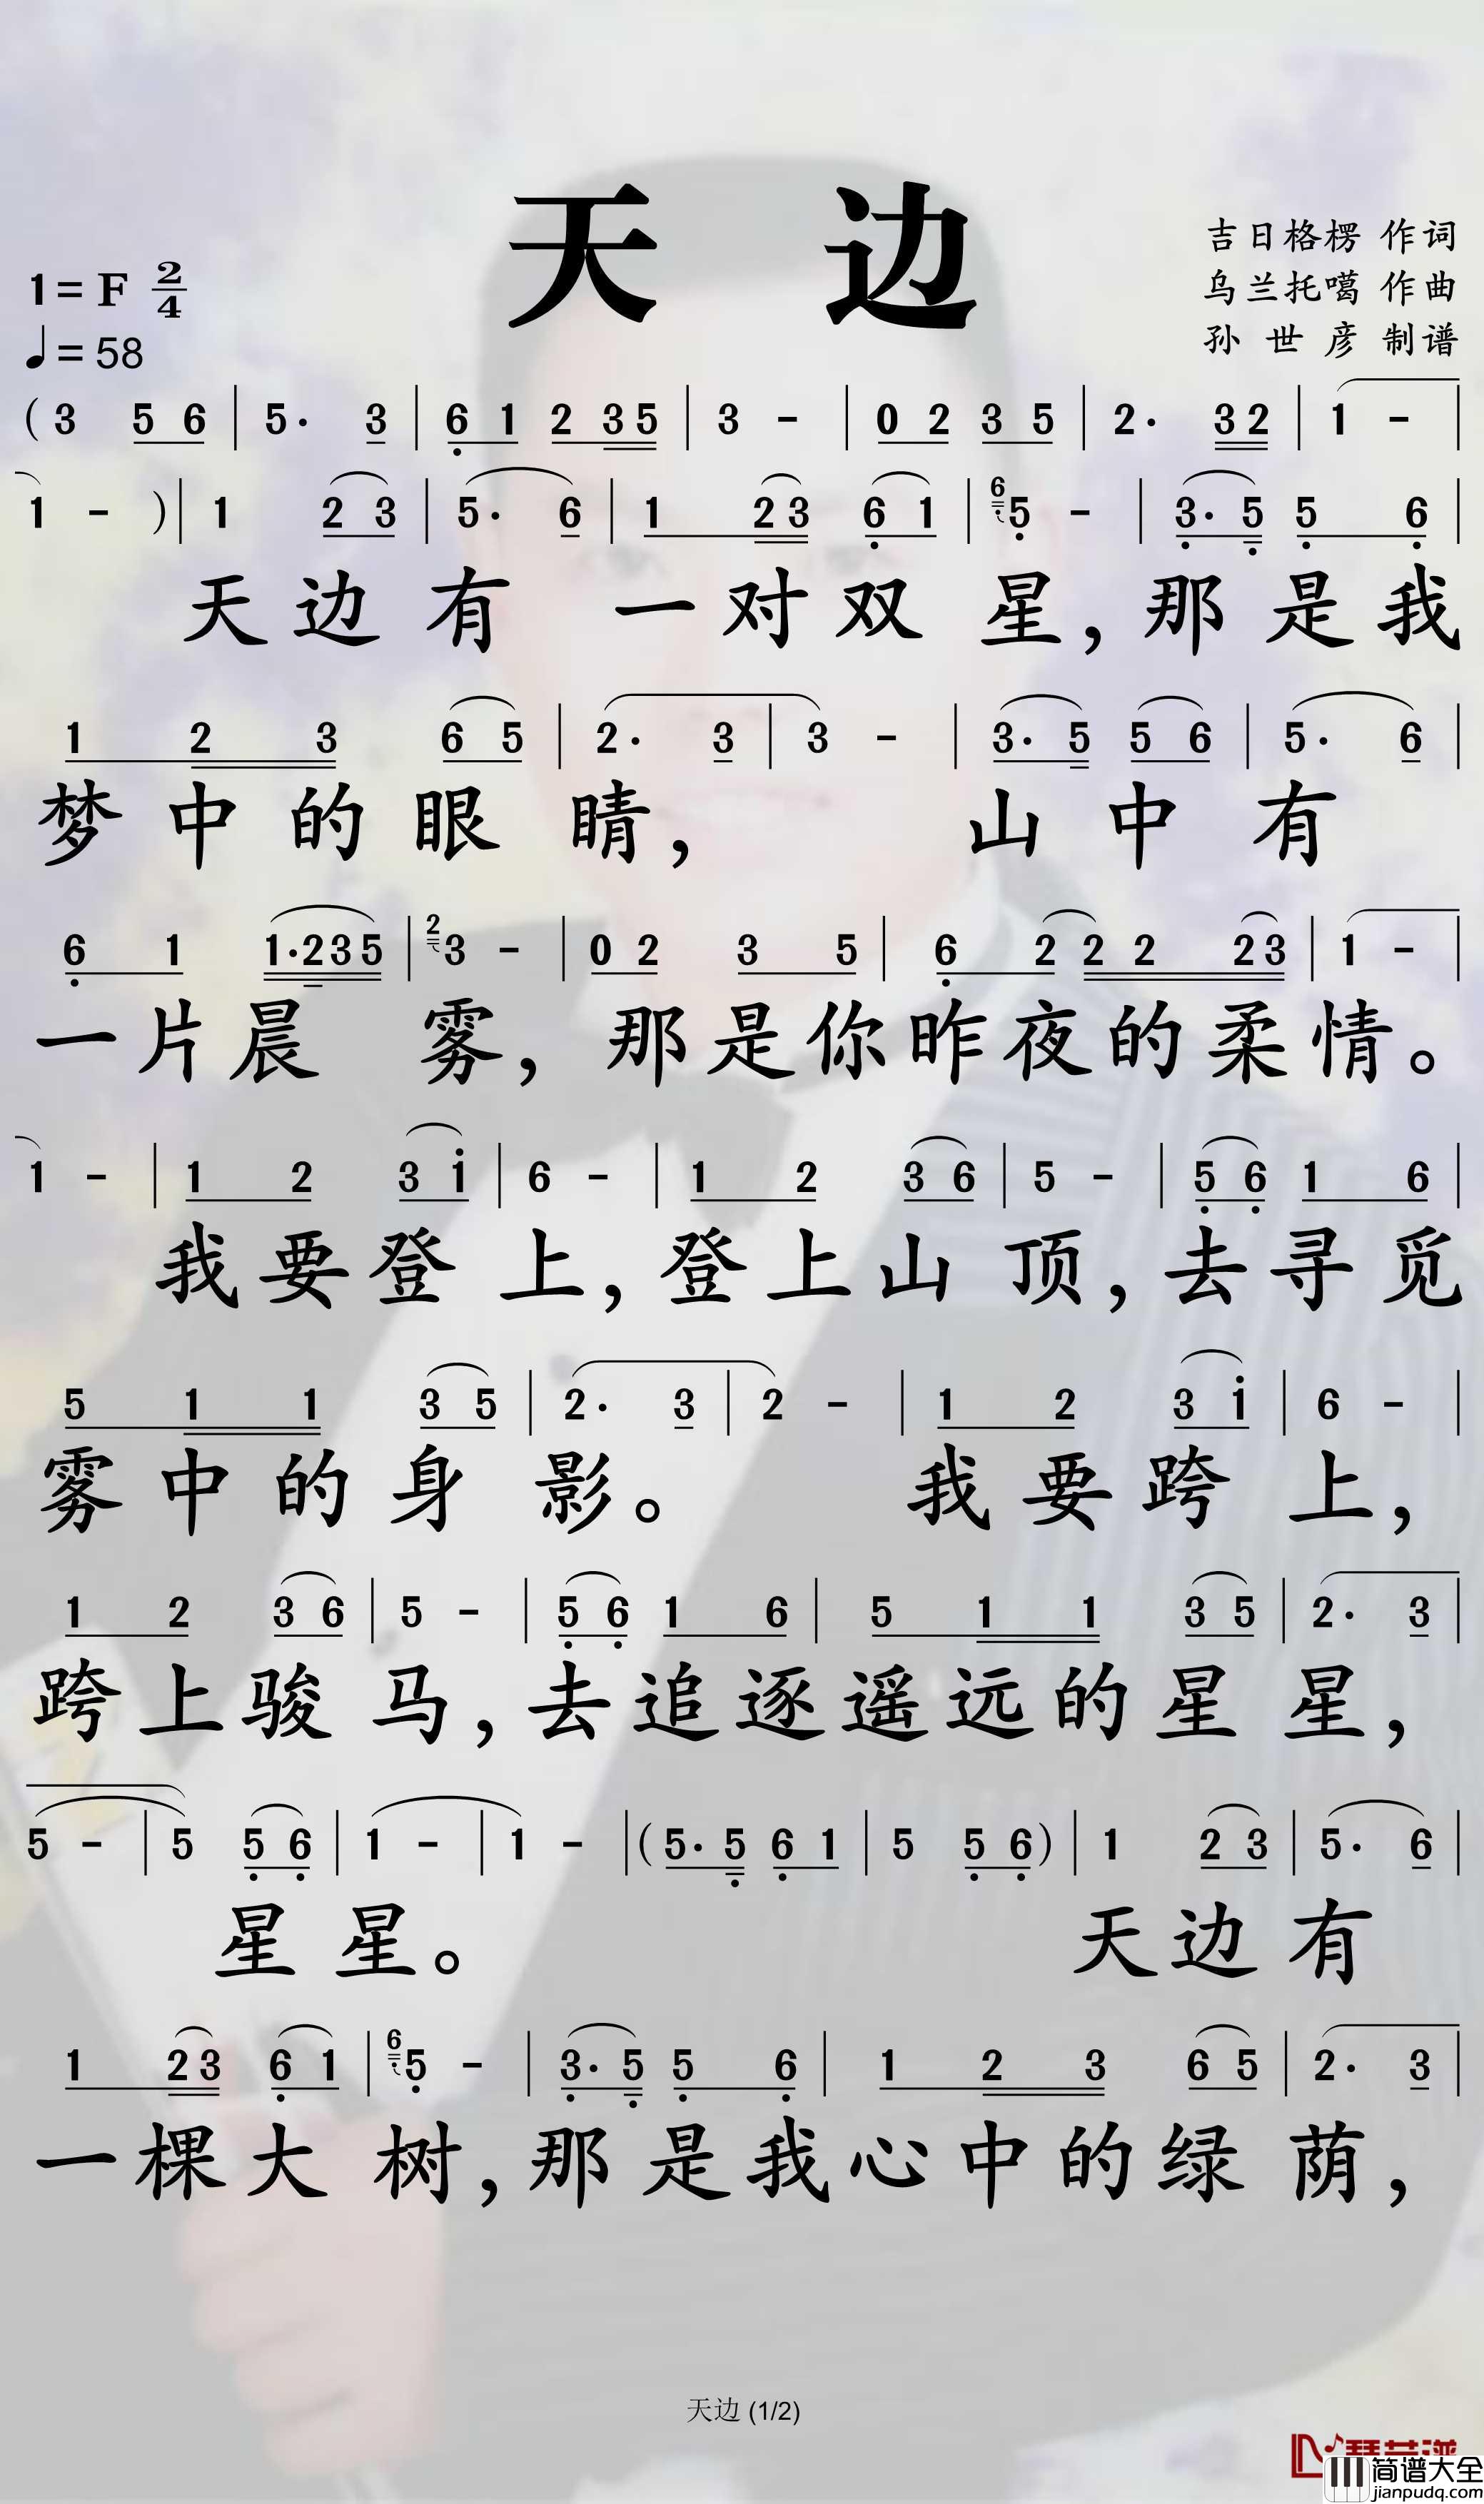 天 边
吉日格楞 作词
乌兰托噶 作曲
孙 世 彦 制谱
1= F 2/4
♩= 58
( 3 5 6 | 5· 3 | 6̣ 1 2 3 5 | 3 - | 0 2 3 5 | 2· 3 2 | 1 - |
1 - ) | 1 2 3 | 5· 6 | 1 2 3 6̣ 1 | 6 5̣ - | 3̣· 5̣ 5̣ 6̣ |
天 边 有 一 对 双 星, 那 是 我
1 2 3 6 5 | 2· 3 | 3 - | 3· 5 5 6 | 5· 6 |
梦 中 的 眼 睛, 山 中 有
6̣ 1 1·2 3 5 | 2 3 - | 0 2 3 5 | 6̣ 2 2 2 2 3 | 1 - |
一 片 晨 雾, 那 是 你 昨 夜 的 柔 情。
1 - | 1 2 3 1̇ | 6 - | 1 2 3 6 | 5 - | 5̣ 6̣ 1 6 |
我 要 登 上, 登 上 山 顶, 去 寻 觅
5 1 1 3 5 | 2· 3 | 2 - | 1 2 3 1̇ | 6 - |
雾 中 的 身 影。 我 要 跨 上,
1 2 3 6 | 5 - | 5̣ 6̣ 1 6 | 5 1 1 3 5 | 2· 3 |
跨 上 骏 马, 去 追 逐 遥 远 的 星 星,
5 - | 5 5̣ 6̣ | 1 - | 1 - | ( 5· 5̣ 6̣ 1 | 5 5̣ 6̣ ) | 1 2 3 | 5· 6 |
星 星。 天 边 有
1 2 3 6̣ 1 | 6 5̣ - | 3̣· 5̣ 5̣ 6̣ | 1 2 3 6 5 | 2· 3 |
一 棵 大 树, 那 是 我 心 中 的 绿 荫,
天边 (1/2)
简谱大全
jianpudq.com